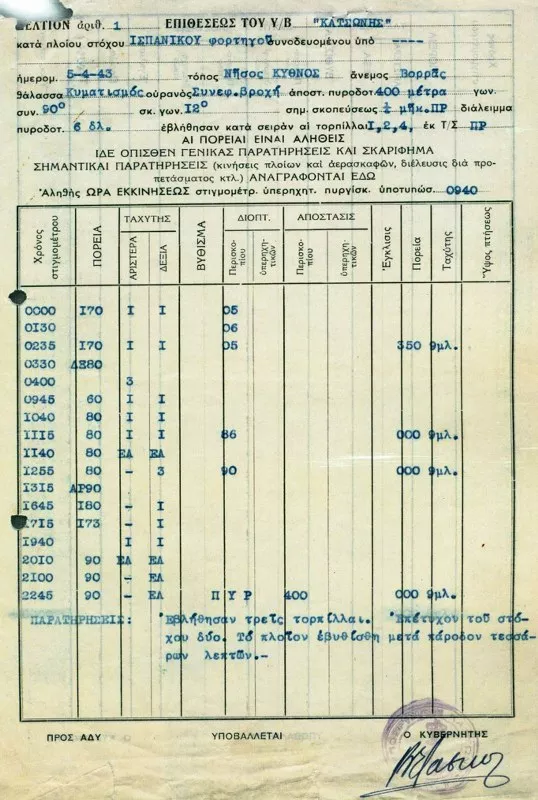 ΔΕΛΤΙΟΝ ἀριθ. 1 ΕΠΙΘΕΣΕΩΣ ΤΟΥ Υ/Β "ΚΑΤΣΩΝΗΣ"
κατά πλοίου στόχου ΙΣΠΑΝΙΚΟΥ φορτηγοῦ συνοδευομένου ὑπό ----
ἡμερομ. 5-4-43 τόπος Νῆσος ΚΥΘΝΟΣ ἄνεμος Βορρᾶς
θάλασσα Κυματισμός οὐρανός Συνεφ.βροχή ἀποστ. πυροδοτ. 400 μέτρα γων.
συν. 90° σκ. γων. Ι2° σημ. σκοπεύσεως ½ μήκ.ΠΡ διάλειμμα
πυροδοτ. 6 δλ. ἐβλήθησαν κατά σειράν αἱ τορπίλλαι Ι,2,4, ἐκ Τ/Σ ΠΡ
ΑΙ ΠΟΡΕΙΑΙ ΕΙΝΑΙ ΑΛΗΘΕΙΣ
ΙΔΕ ΟΠΙΣΘΕΝ ΓΕΝΙΚΑΣ ΠΑΡΑΤΗΡΗΣΕΙΣ ΚΑΙ ΣΚΑΡΙΦΗΜΑ
ΣΗΜΑΝΤΙΚΑΙ ΠΑΡΑΤΗΡΗΣΕΙΣ (κινήσεις πλοίων καί ἀεροσκαφῶν, διέλευσις διά προ-
πετάσματος κτλ.) ΑΝΑΓΡΑΦΟΝΤΑΙ ΕΔΩ
Ἀληθής ΩΡΑ ΕΚΚΙΝΗΣΕΩΣ στιγμομέτρ. ὑπερηχητ. πυργίσκ. ὑποτυπώσ. 0940
Χρόνος στιγμομέτρου ΠΟΡΕΙΑ ΤΑΧΥΤΗΣ ΑΡΙΣΤΕΡΑ ΔΕΞΙΑ ΒΥΘΙΣΜΑ ΔΙΟΠΤ. Περισκοπίου ὑπερηχητικῶν ΑΠΟΣΤΑΣΙΣ Περισκοπίου ὑπερηχητικῶν Ἔγκλισις Πορεία Ταχύτης Ὕψος πτήσεως
0000 Ι70 Ι Ι 05
0Ι30 06
0235 Ι70 Ι Ι 05 350 9μλ.
0330 ΔΕ80
0400 3
0945 60 Ι Ι
Ι040 80 Ι Ι
ΙΙΙ5 80 Ι Ι 86 000 9μλ.
ΙΙ40 80 ΕΛ ΕΛ
Ι255 80 - 3 90 000 9μλ.
Ι3Ι5 ΑΡ90
Ι645 Ι80 - Ι
Ι7Ι5 Ι73 - Ι
Ι940 Ι Ι
20Ι0 90 ΕΛ ΕΛ
2Ι00 90 - ΕΛ
2245 90 - ΕΛ ΠΥΡ 400 000 9μλ.
ΠΑΡΑΤΗΡΗΣΕΙΣ: Ἐβλήθησαν τρεῖς τορπίλλαι. Ἐπέτυχον τοῦ στό-
χου δύο. Τό πλοῖον ἐβυθίσθη μετά πάροδον τεσσά-
ρων λεπτῶν.-
ΠΡΟΣ ΑΔΥ ΥΠΟΒΑΛΛΕΤΑΙ Ο ΚΥΒΕΡΝΗΤΗΣ